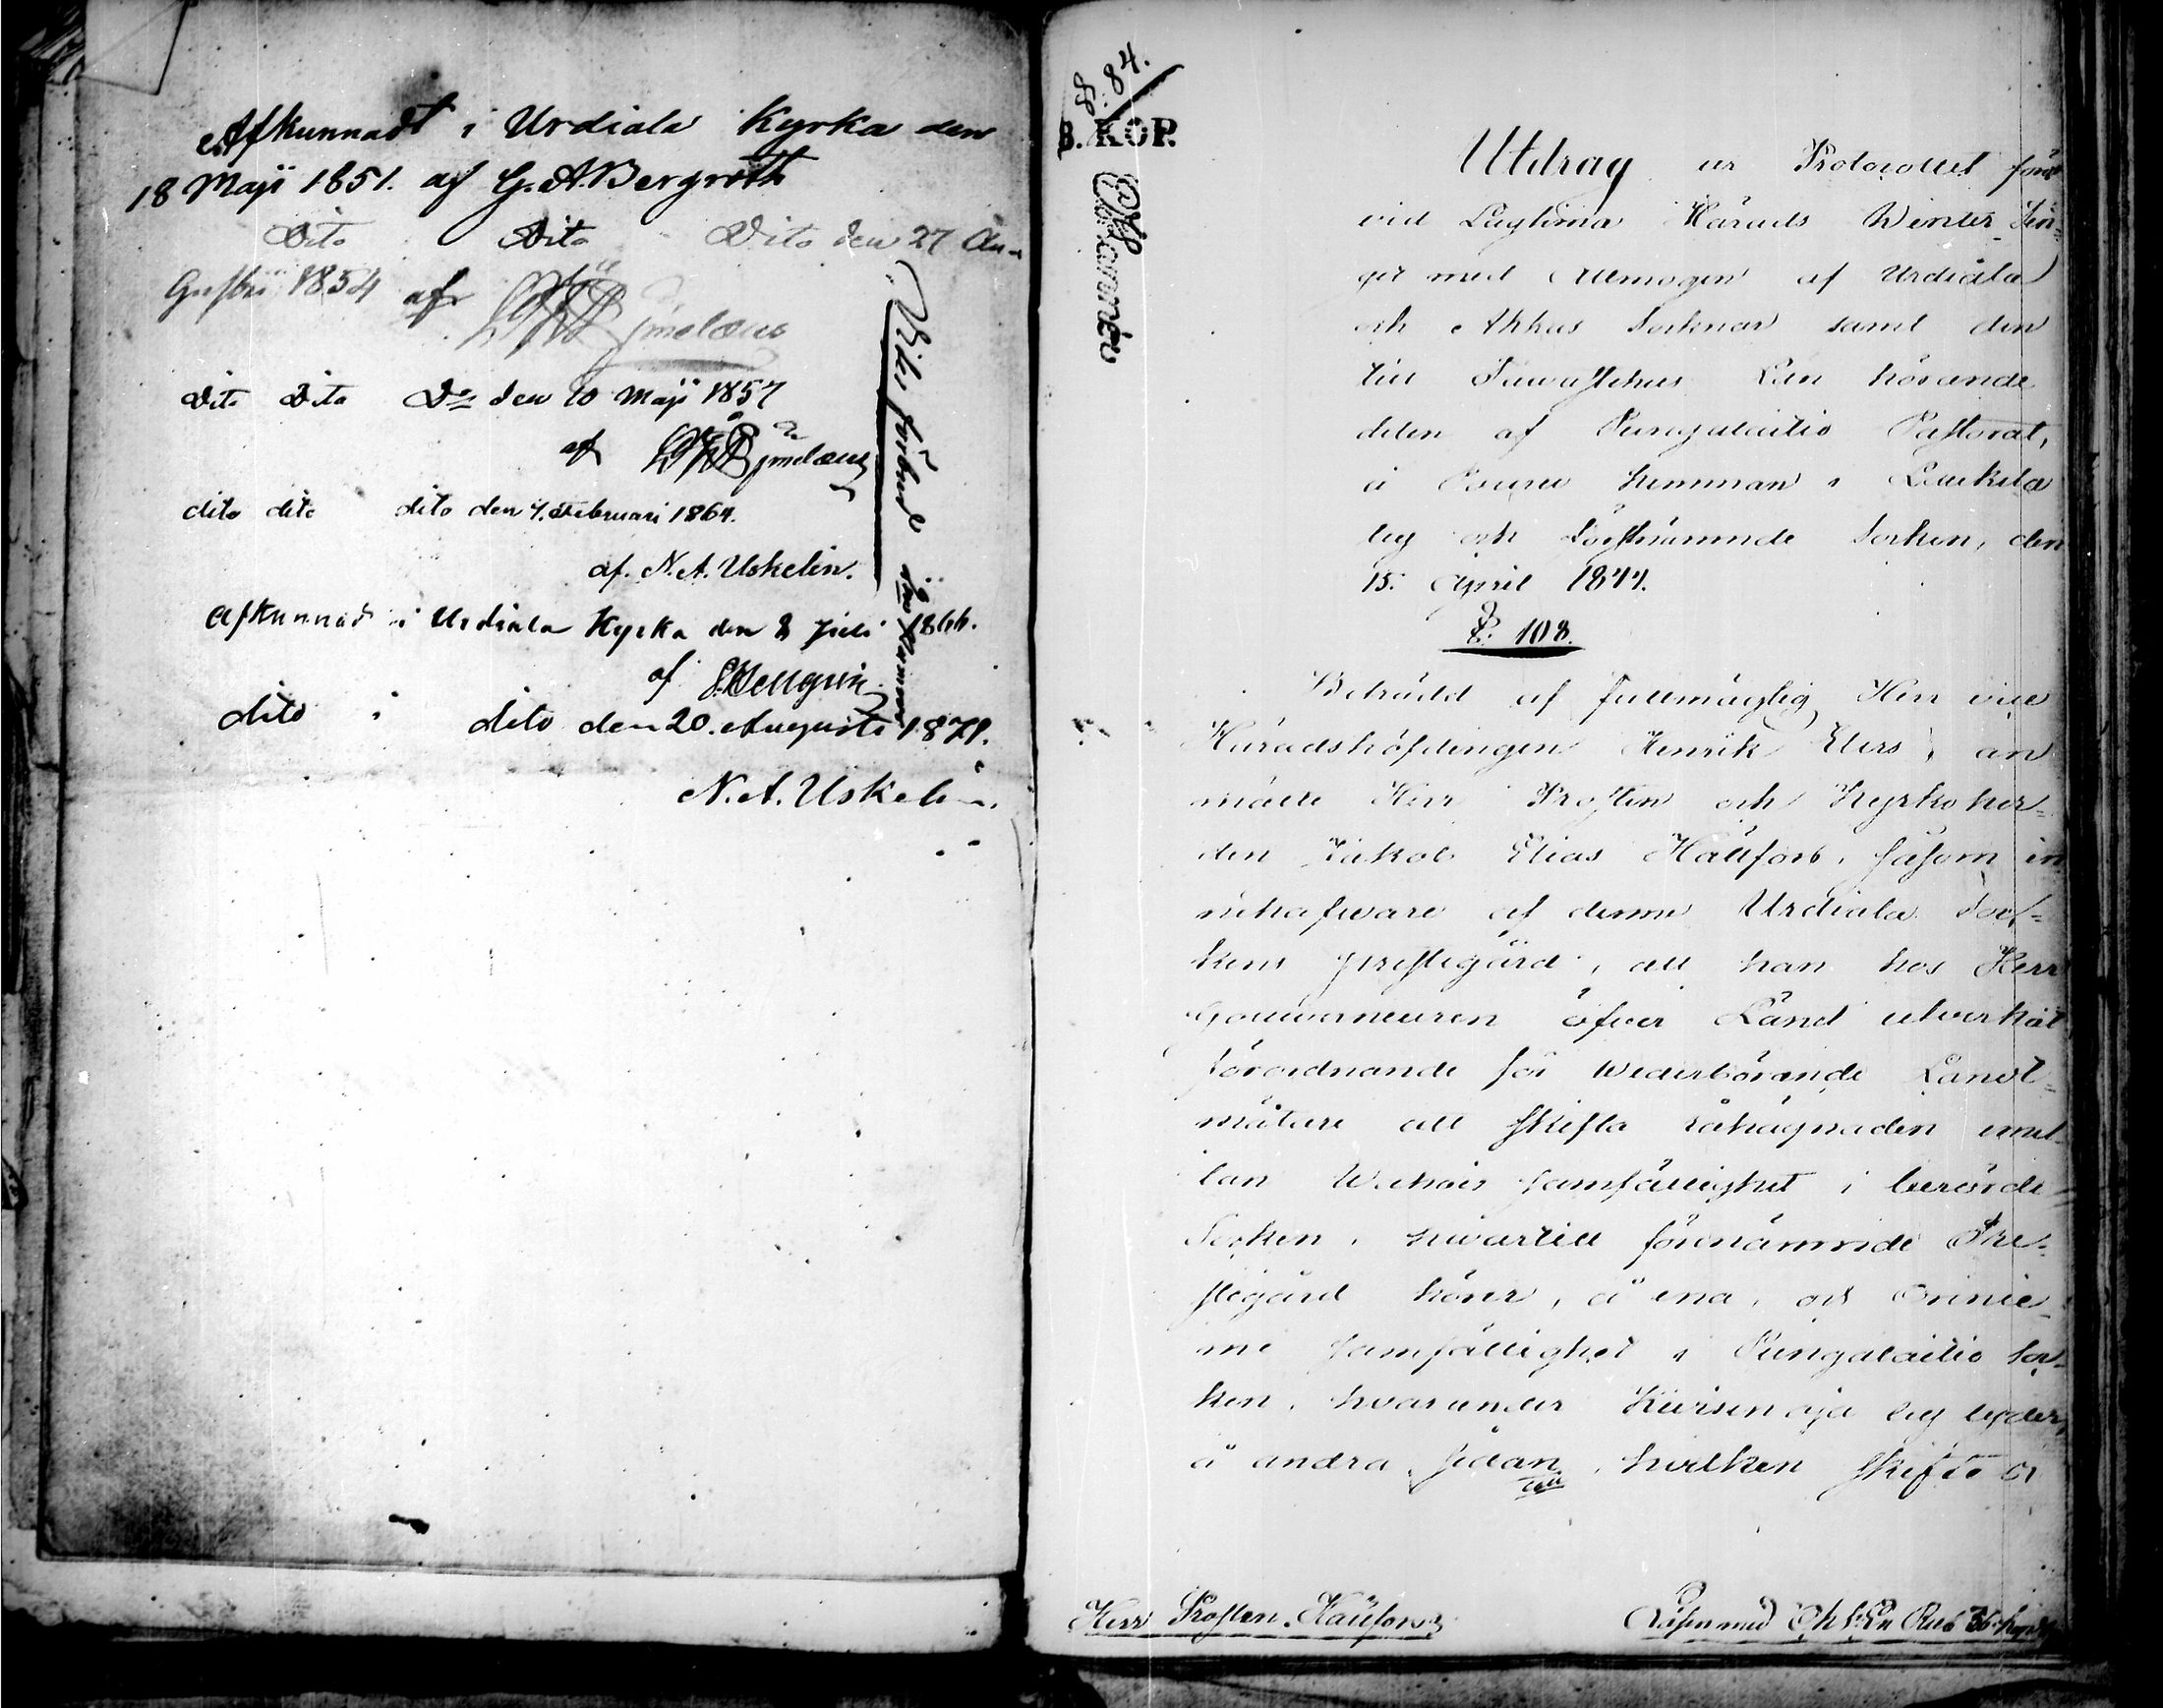 Afkunnadt i Urdiala Kyrka den
18 Maji 1851. af G. A. Bergroth
Dito Dito Dito den 27 Au-
gusti 1854 af
Dito Dito Do den 10 Maji 1857
af
dito dito dito den 7. Februari 1864.
af. N. A. Uskelin.
Afkunnad i Urdiala Kyrka den 8 Juli 1866.
af
dito i dito den 20. Augusti 1871.
N. A. Uskelin.
Vites förbud
84.
B. KOP.
Utdrag ur Protocollet fördt
vid Lagtima Härads Winter Tin-
get med Allmogen af Urdiala
och Akkas Socknar samt den
till Tawastehus Län hörande
delen af Pungalaitio Pastorat,
å hemman i Laukela
by och förstnämnde Socken, den
15. April 1844.
§. 108.
Beträdd af fullmägtig Herr vice
Häradshöfdingen Henrik Elers, an
mälte Herr Prosten och Kyrkoher-
den Jakob Elias Hällfors, såsom in
nehafware af denne Urdiala Soc-
kens prestegård, att han hos Herr
Gouverneuren öfver Länet utverkat
förordnande för wederbörande Landt-
mätare att skifta råhägnaden emel-
lan samfällighet i berörde
Socken, hwartill förenämnde Pre-
stegård hörer, å ena, och
me samfällighet i Pungalaitio Soc-
ken, hvarunder by lyder,
å andra sidan, hvilken skifte
Herr Prosten Hällfors